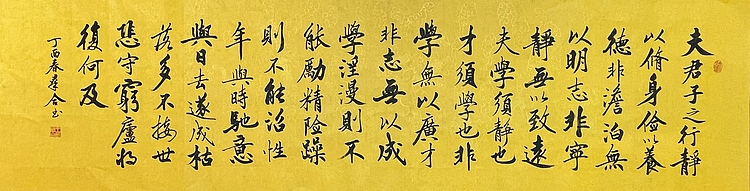 夫君子之行靜
以脩身儉以養
德非澹泊無
以明志非寧
靜無以致遠
夫學須靜也
才須學也非
學無以廣才
非志無以成
學淫漫則不
能勵精險躁
則不能治性
年與時馳意
與日去遂成枯
落多不接世
悲守窮廬將
復何及
丁酉春孝合书